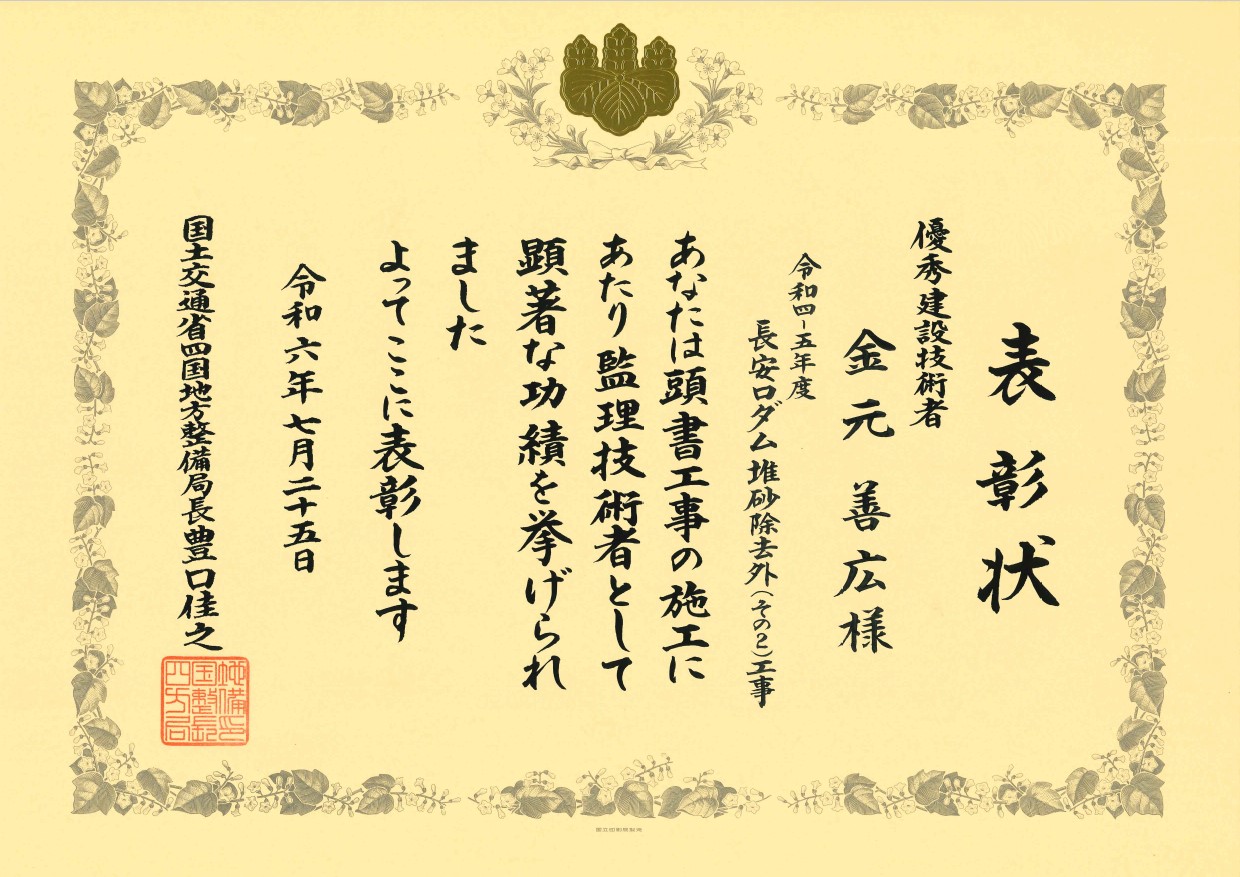 表彰状
優秀建設技術者
金元善広様
令和四-五年度
長安口ダム堆砂除去外(その2)工事
あなたは頭書工事の施工に
あたり監理技術者として
顕著な功績を挙げられ
ました
よってここに表彰します
令和六年七月二十五日
国土交通省四国地方整備局長豊口佳之